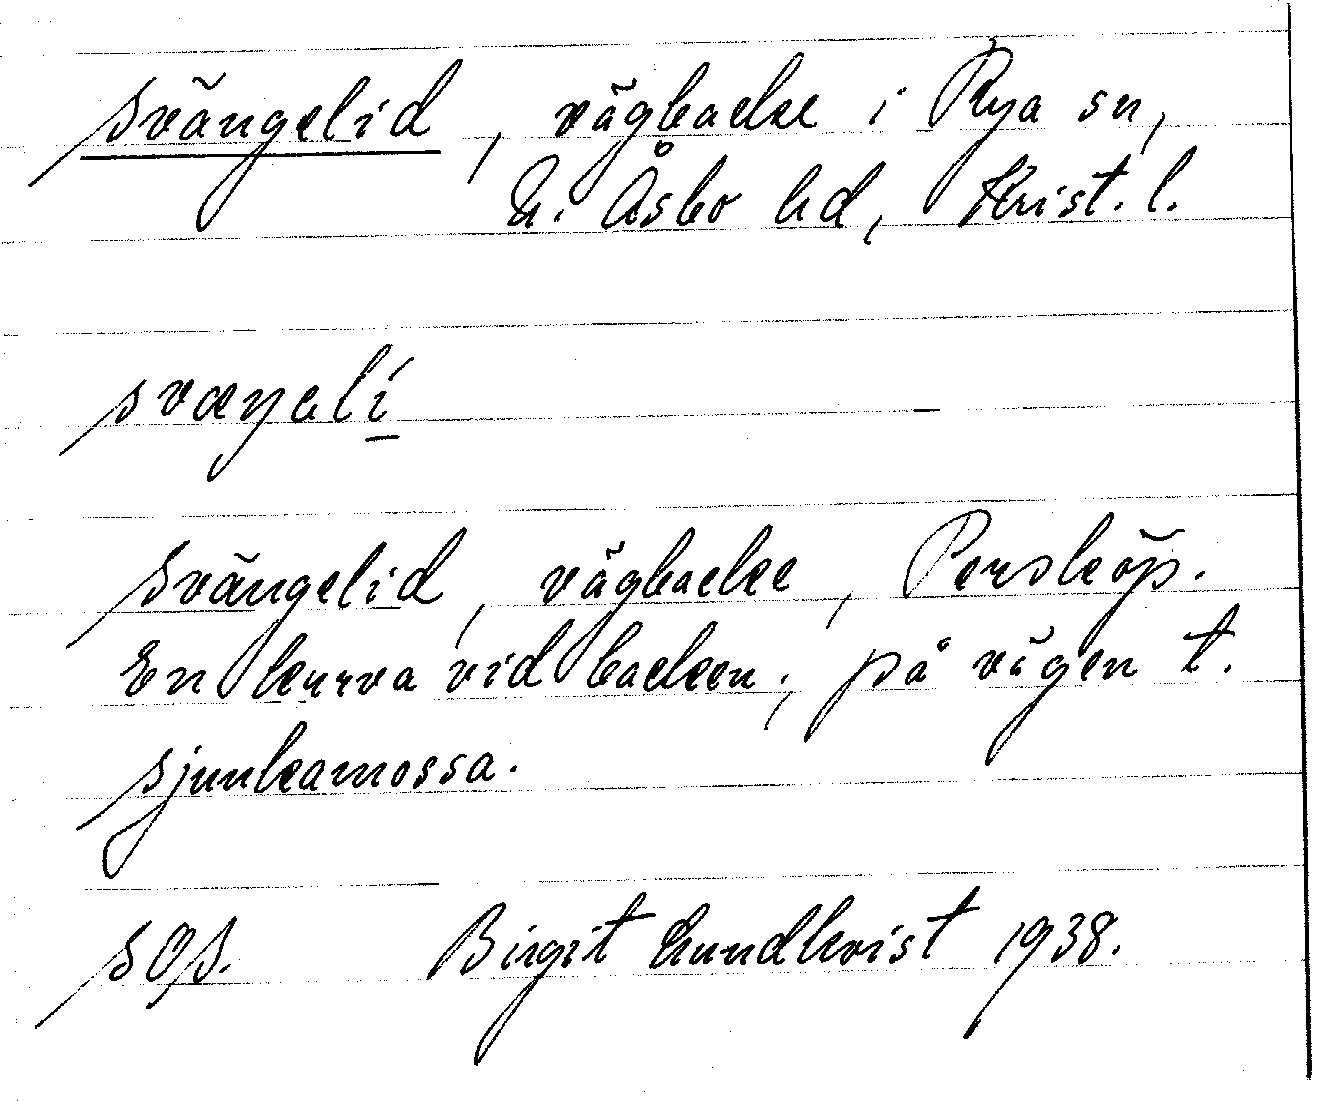 Svängelid, vägbacke i Rya sn,
N. Åsbo hd, Krist. l.
svæŋəlí
Svängelid, vägbacke, Persköp.
En kurva vid backen; på vägen t.
Sjunkamossa.
SOS. Birgit Lundkvist 1938.